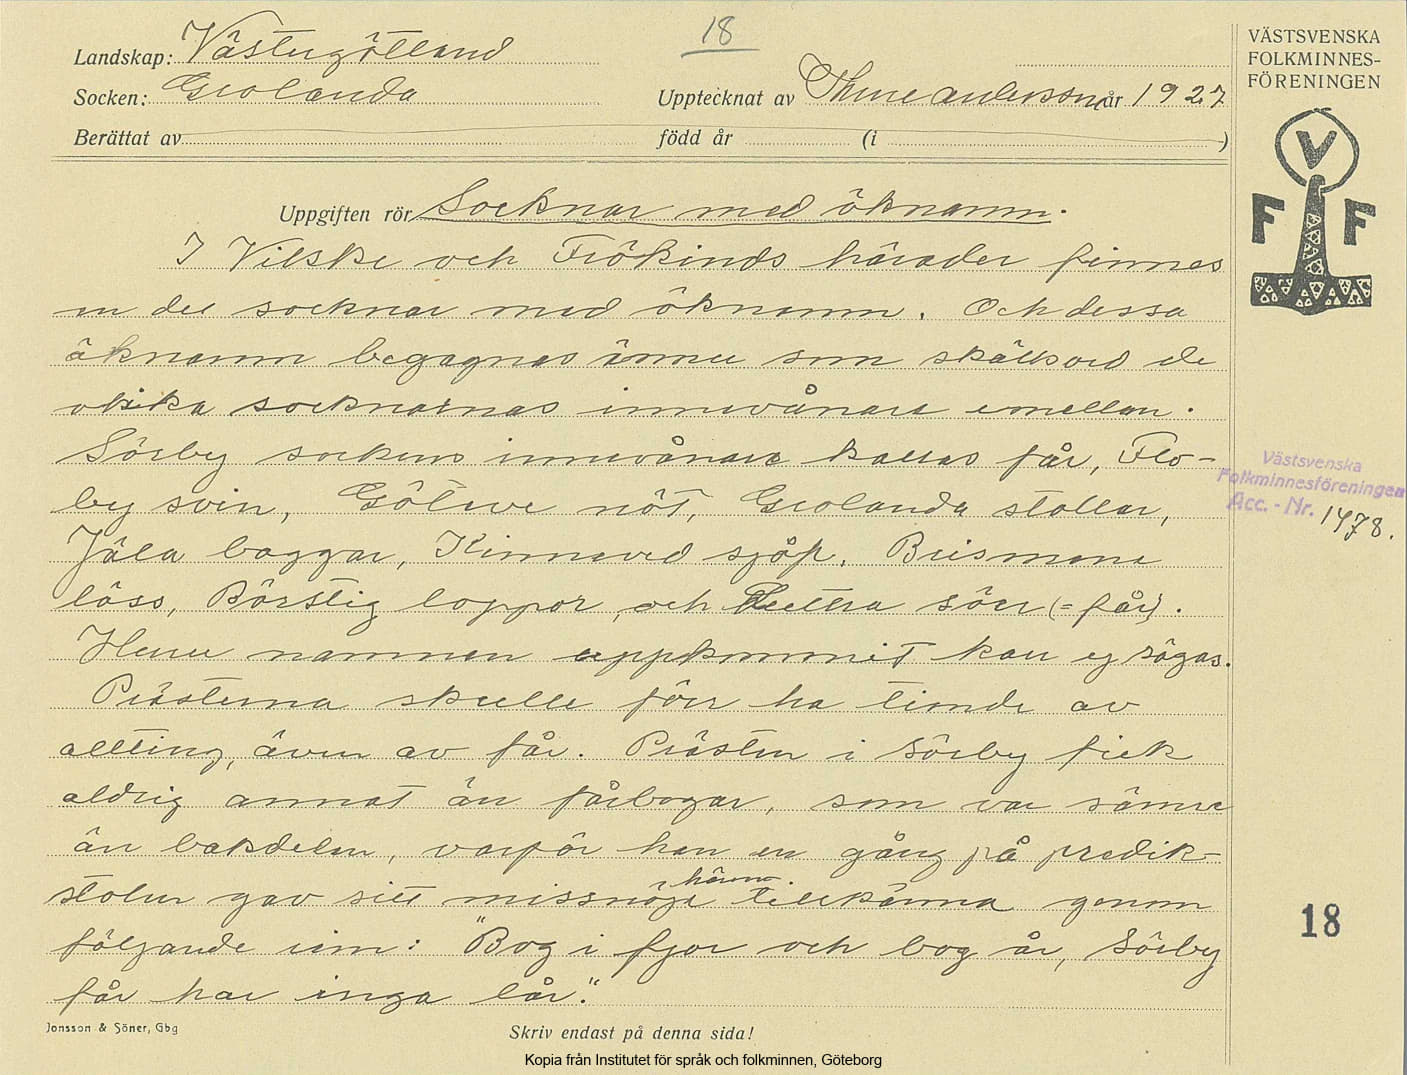 18
Landskap: Västergötland
Socken: Grolanda
Upptecknat av Thure Andersson år 1927
Berättat av född år (i )
VÄSTSVENSKA
FOLKMINNES-
FÖRENINGEN
V
F F
Uppgiften rör Socknar med öknamn.
I Vilske och Frökinds härader finnes
en del socknar med öknamn. Och dessa
öknamn begagnas ännu som skällsord de
olika socknarnas innevånare emellan.
Sörby sockens innevånare kallas får, Flo-
by svin, Götwe nöt, Grolanda stollar,
Jäla baggar, Kinneved sjöp. Brismene
löss, Börstig loppor, och Luttra söer (= får).
Huru namnen uppkommit kan ej sägas.
Prästerna skulle förr ha tionde av
allting, även av får. Prästen i Sörby fick
aldrig annat än fårbogar, som var sämre
än bakdelen, varför han en gång på predik-
stolen gav sitt missnöje härmed tillkänna genom
följande rim: "Bog i fjor och bog i år, Sörby
får har inga lår."
Västsvenska
Folkminnesföreningen
Acc. - Nr. 1478.
18
Jonsson & Söner, Gbg
Skriv endast på denna sida!
Kopia från Institutet för språk och folkminnen, Göteborg